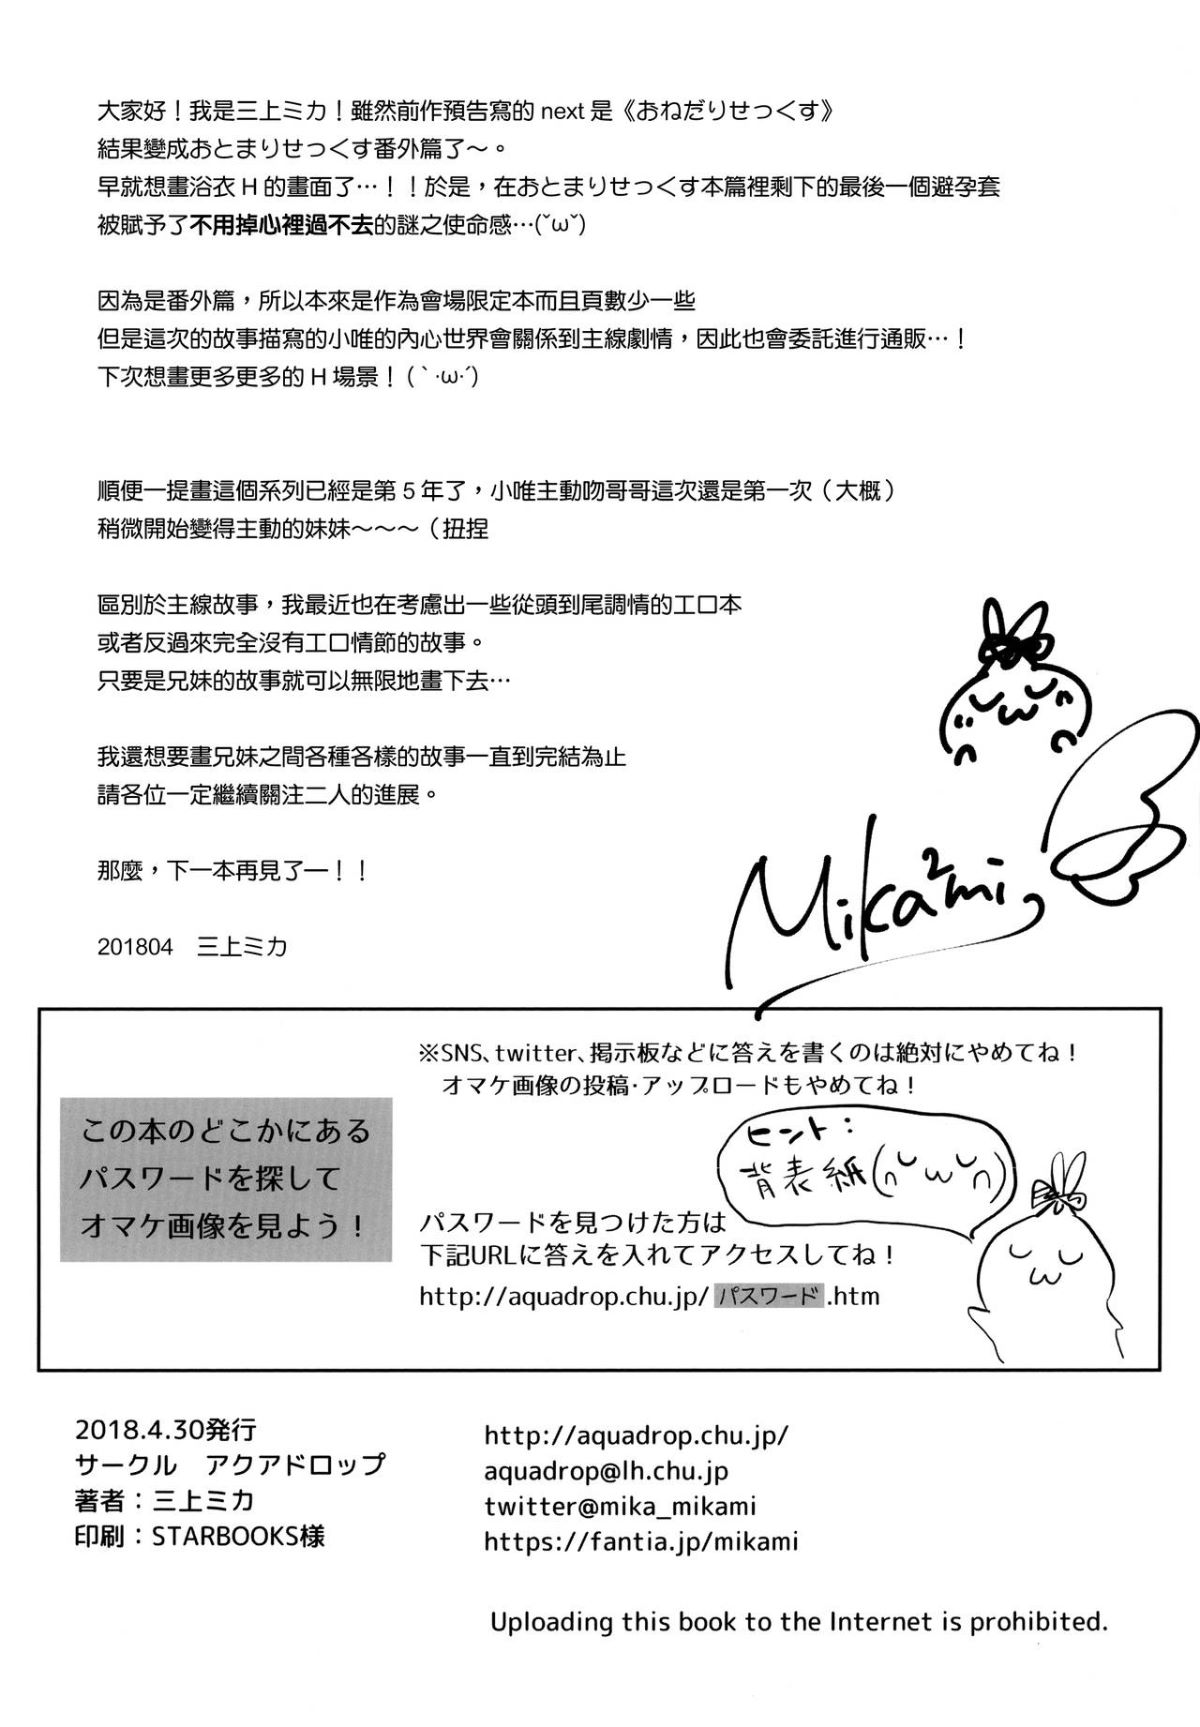 大家好！我是三上ミカ！雖然前作預告寫的 next 是《おねだりせっくす》
結果變成おとまりせっくす番外篇了～。
早就想畫浴衣 H 的畫面了…！！於是，在おとまりせっくす本篇裡剩下的最後一個避孕套
被賦予了不用掉心裡過不去的謎之使命感…(˘ω˘)
因為是番外篇，所以本來是作為會場限定本而且頁數少一些
但是這次的故事描寫的小唯的內心世界會關係到主線劇情，因此也會委託進行通販…！
下次想畫更多更多的 H 場景！(｀·ω·´)
順便一提畫這個系列已經是第 5 年了，小唯主動吻哥哥這次還是第一次（大概）
稍微開始變得主動的妹妹～～～（扭捏
區別於主線故事，我最近也在考慮出一些從頭到尾調情的工口本
或者反過來完全沒有工口情節的故事。
只要是兄妹的故事就可以無限地畫下去…
我還想要畫兄妹之間各種各樣的故事一直到完結為止
請各位一定繼續關注二人的進展。
那麼，下一本再見了一！！
201804　三上ミカ
Mika²mi
※SNS、twitter、掲示板などに答えを書くのは絶対にやめてね！
オマケ画像の投稿・アップロードもやめてね！
この本のどこかにある
パスワードを探して
オマケ画像を見よう！
ヒント：
背表紙(∩˘ω˘∩)
パスワードを見つけた方は
下記URLに答えを入れてアクセスしてね！
http://aquadrop.chu.jp/ パスワード .htm
2018.4.30発行
サークル　アクアドロップ
著者：三上ミカ
印刷：STARBOOKS様
http://aquadrop.chu.jp/
aquadrop@lh.chu.jp
twitter@mika_mikami
https://fantia.jp/mikami
Uploading this book to the Internet is prohibited.